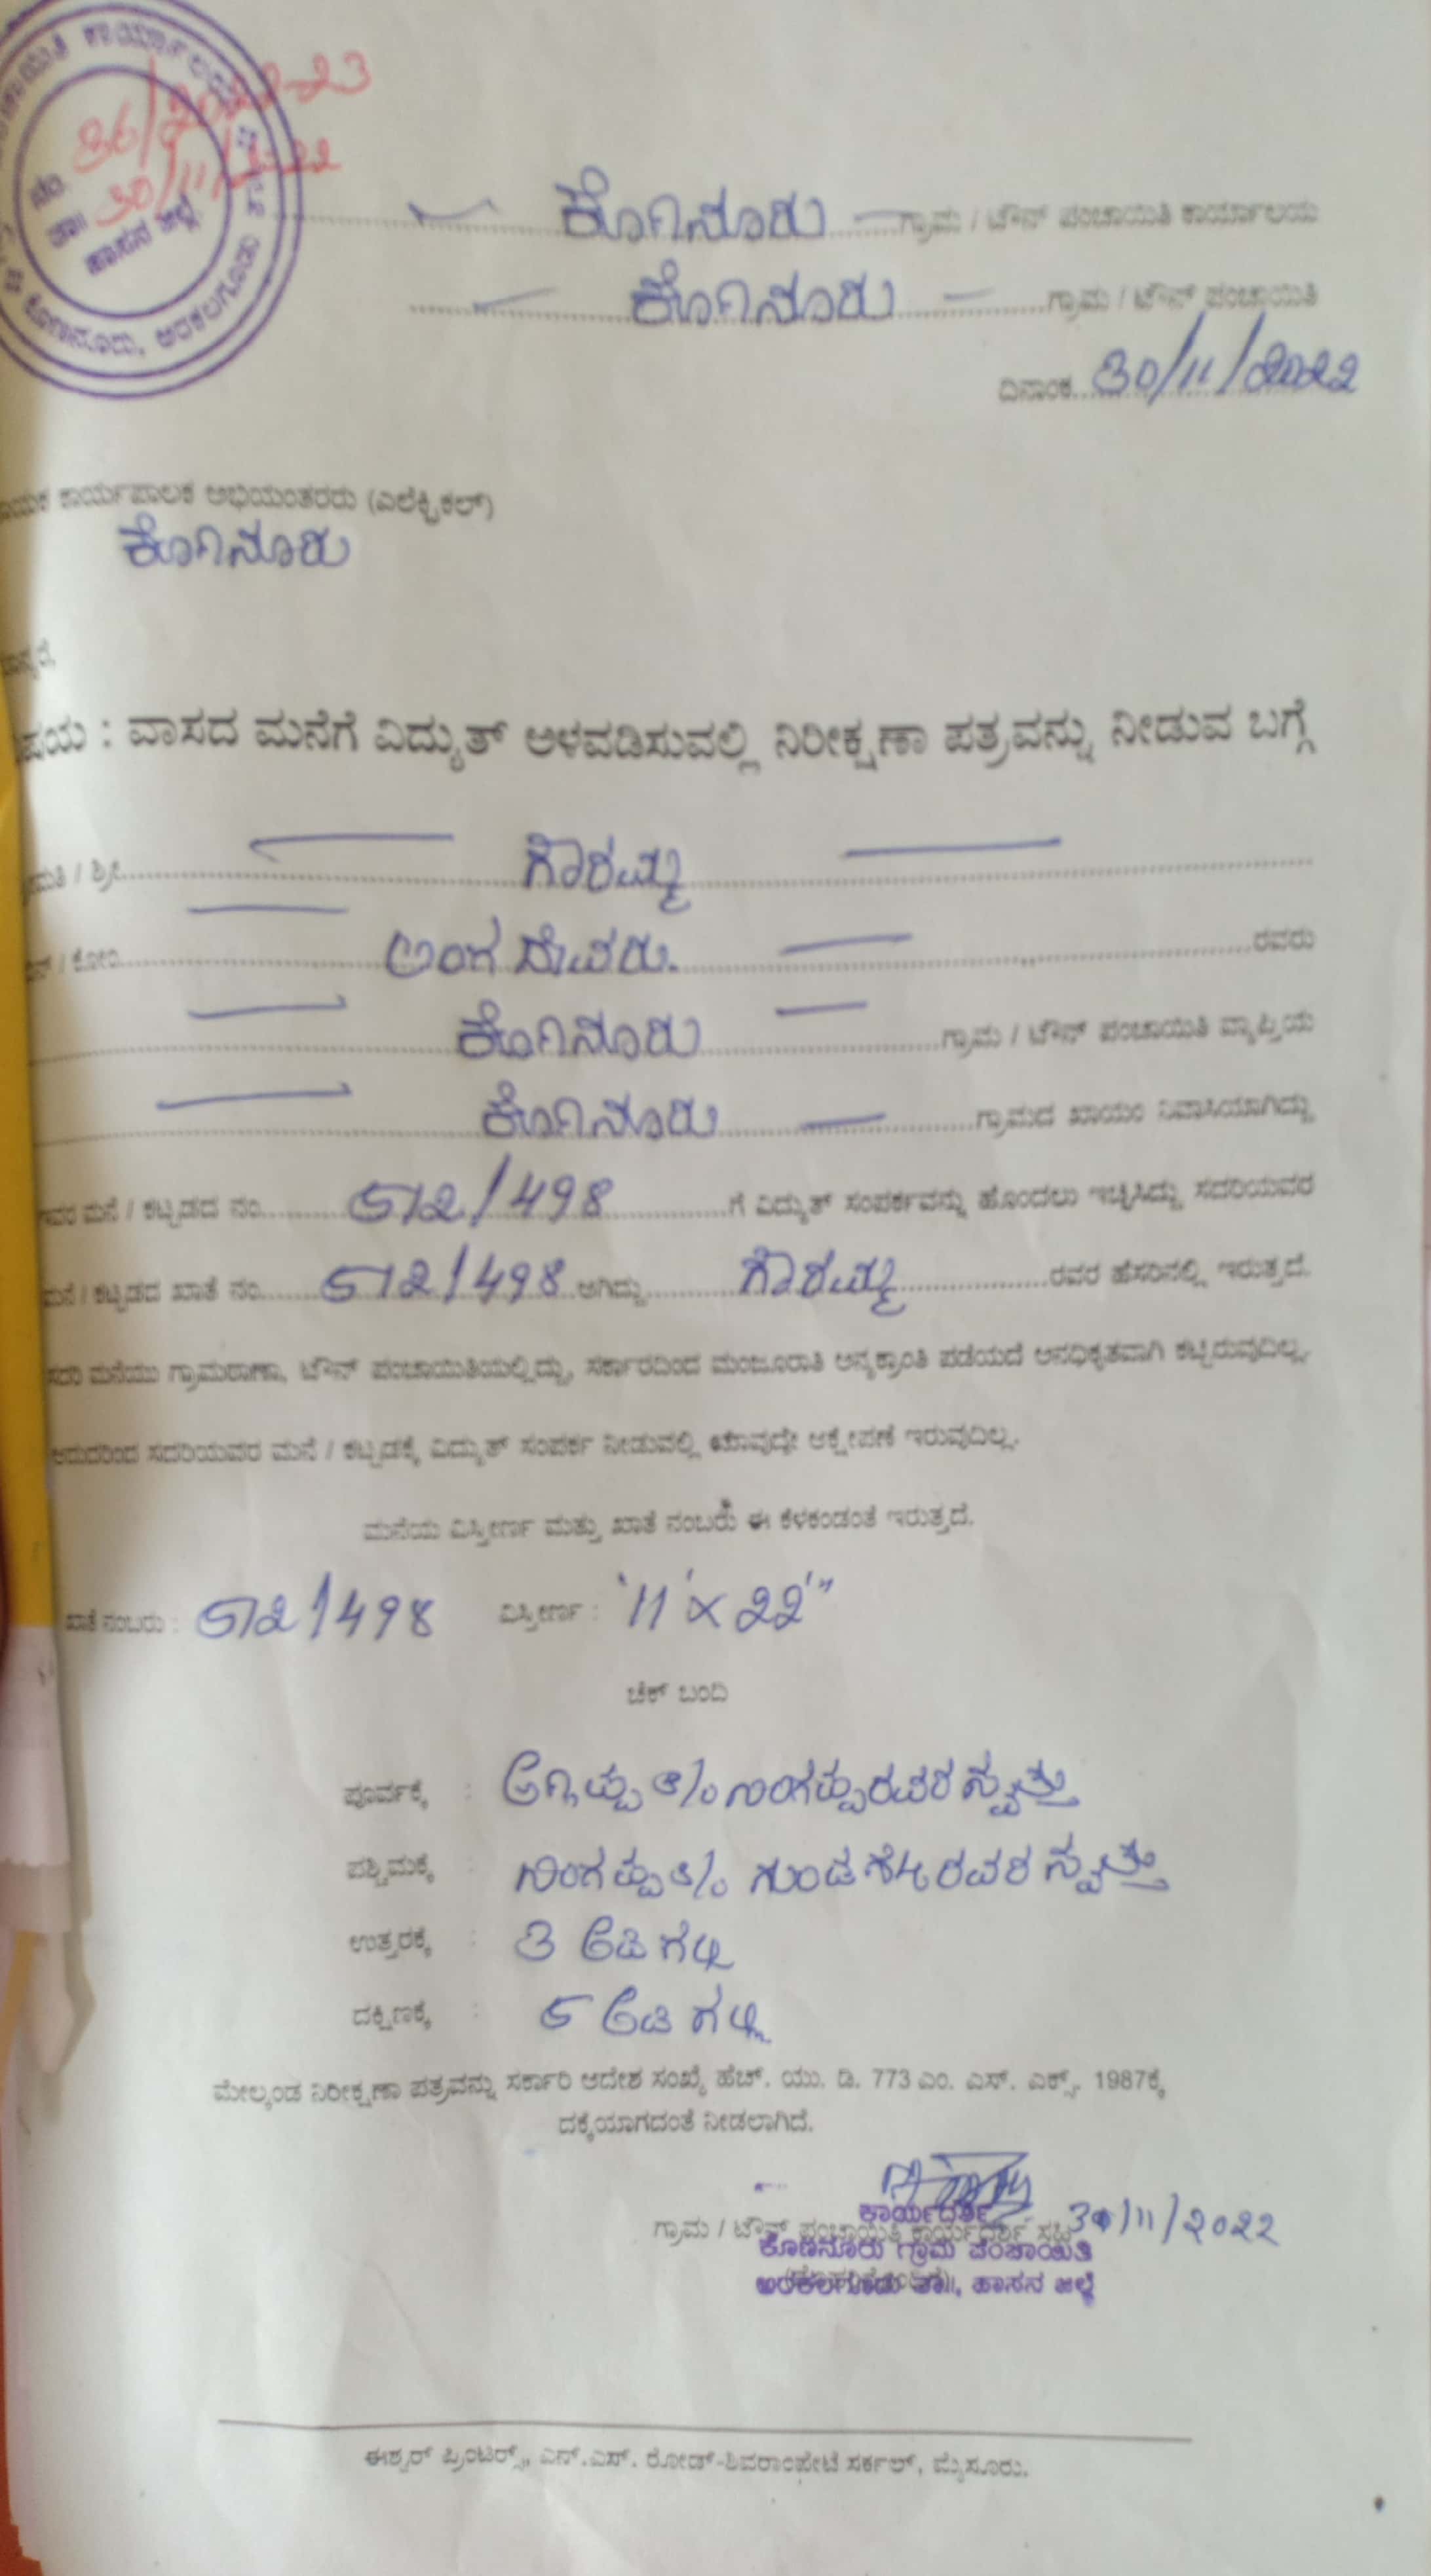 ನಂ. 36/2022-23
ತಾ॥ 30/11/2022
ಹಾಸನ ಜಿಲ್ಲೆ
ಕೊಣನೂರು, ಅರಕಲಗೂಡು
ಕೊಣನೂರು ಗ್ರಾಮ / ಟೌನ್ ಪಂಚಾಯಿತಿ ಕಾರ್ಯಾಲಯ
ಕೊಣನೂರು ಗ್ರಾಮ / ಟೌನ್ ಪಂಚಾಯಿತಿ
ದಿನಾಂಕ 30/11/2022
ಕಾರ್ಯಪಾಲಕ ಅಭಿಯಂತರರು (ಎಲೆಕ್ಟ್ರಿಕಲ್)
ಕೊಣನೂರು
: ವಾಸದ ಮನೆಗೆ ವಿದ್ಯುತ್ ಅಳವಡಿಸುವಲ್ಲಿ ನಿರೀಕ್ಷಣಾ ಪತ್ರವನ್ನು ನೀಡುವ ಬಗ್ಗೆ
/ ಶ್ರೀ ಗೌರಮ್ಮ
/ ಕೋಂ ರವರು
ಕೊಣನೂರು ಗ್ರಾಮ / ಟೌನ್ ಪಂಚಾಯಿತಿ ವ್ಯಾಪ್ತಿಯ
ಕೊಣನೂರು ಗ್ರಾಮದ ಖಾಯಂ ನಿವಾಸಿಯಾಗಿದ್ದು
ಮನೆ / ಕಟ್ಟಡದ ನಂ. 512/498 ಗೆ ವಿದ್ಯುತ್ ಸಂಪರ್ಕವನ್ನು ಹೊಂದಲು ಇಚ್ಛಿಸಿದ್ದು ಸದರಿಯವರ
ಮನೆ / ಕಟ್ಟಡದ ಖಾತೆ ನಂ. 512/498 ಆಗಿದ್ದು ಗೌರಮ್ಮ ರವರ ಹೆಸರಿನಲ್ಲಿ ಇರುತ್ತದೆ.
ಸದರಿ ಮನೆಯು ಗ್ರಾಮಠಾಣಾ, ಟೌನ್ ಪಂಚಾಯಿತಿಯಲ್ಲಿದ್ದು, ಸರ್ಕಾರದಿಂದ ಮಂಜೂರಾತಿ ಅನ್ಯಕ್ರಾಂತಿ ಪಡೆಯದೆ ಅನಧಿಕೃತವಾಗಿ ಕಟ್ಟಿರುವುದಿಲ್ಲ.
ಆದುದರಿಂದ ಸದರಿಯವರ ಮನೆ / ಕಟ್ಟಡಕ್ಕೆ ವಿದ್ಯುತ್ ಸಂಪರ್ಕ ನೀಡುವಲ್ಲಿ ಯಾವುದೇ ಆಕ್ಷೇಪಣೆ ಇರುವುದಿಲ್ಲ.
ಮನೆಯ ವಿಸ್ತೀರ್ಣ ಮತ್ತು ಖಾತೆ ನಂಬರು ಈ ಕೆಳಕಂಡಂತೆ ಇರುತ್ತದೆ.
ಖಾತೆ ನಂಬರು : 512/498 ವಿಸ್ತೀರ್ಣ : '11' x 22'"
ಚೆಕ್ ಬಂದಿ
ಪೂರ್ವಕ್ಕೆ : ನಿಂಗಪ್ಪರವರ ಸ್ವತ್ತು
ಪಶ್ಚಿಮಕ್ಕೆ : ನಿಂಗಪ್ಪ ರವರ ಸ್ವತ್ತು
ಉತ್ತರಕ್ಕೆ : 3 ಅಡಿ ಗಲ್ಲಿ
ದಕ್ಷಿಣಕ್ಕೆ : 5 ಅಡಿ ಗಲ್ಲಿ
ಮೇಲ್ಕಂಡ ನಿರೀಕ್ಷಣಾ ಪತ್ರವನ್ನು ಸರ್ಕಾರಿ ಆದೇಶ ಸಂಖ್ಯೆ ಹೆಚ್. ಯು. ಡಿ. 773 ಎಂ. ಎಸ್. ಎಕ್ಸ್. 1987ಕ್ಕೆ
ದಕ್ಕೆಯಾಗದಂತೆ ನೀಡಲಾಗಿದೆ.
ಕಾರ್ಯದರ್ಶಿ
ಗ್ರಾಮ / ಟೌನ್ ಪಂಚಾಯಿತಿ ಕಾರ್ಯದರ್ಶಿ ಸಹಿ 30/11/2022
ಕೊಣನೂರು ಗ್ರಾಮ ಪಂಚಾಯಿತಿ
ಅರಕಲಗೂಡು ತಾ॥, ಹಾಸನ ಜಿಲ್ಲೆ
ಈಶ್ವರ್ ಪ್ರಿಂಟರ್ಸ್, ಎನ್.ಎಸ್. ರೋಡ್-ಶಿವರಾಂಪೇಟೆ ಸರ್ಕಲ್, ಮೈಸೂರು.